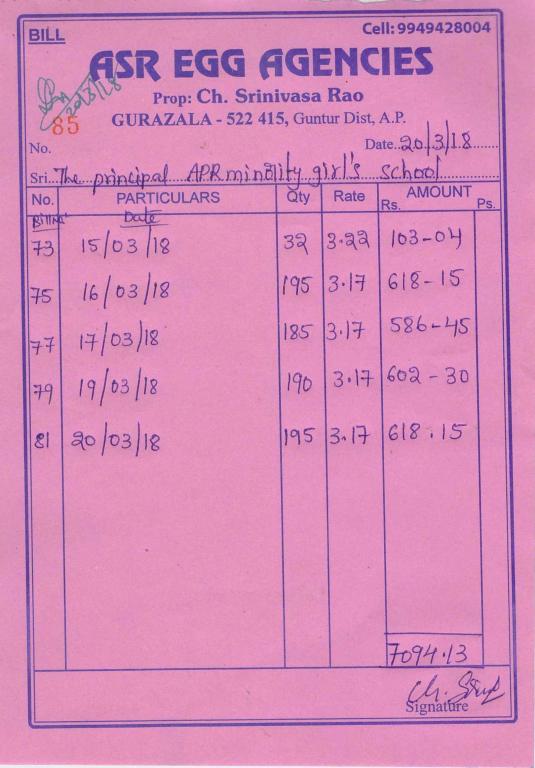 BILL
Cell: 9949428004
ASR EGG AGENCIES
Prop: Ch. Srinivasa Rao
GURAZALA - 522 415, Guntur Dist, A.P.
20/3/18
85
No.
Date. 20/3/18
Sri. The principal APR minolity girl's school
No. PARTICULARS Qty Rate AMOUNT
Rs. Ps.
Date
73 15/03/18 32 3.22 103-04
75 16/03/18 195 3.17 618-15
77 17/03/18 185 3.17 586-45
79 19/03/18 190 3.17 602-30
81 20/03/18 195 3.17 618.15
7094.13
Signature